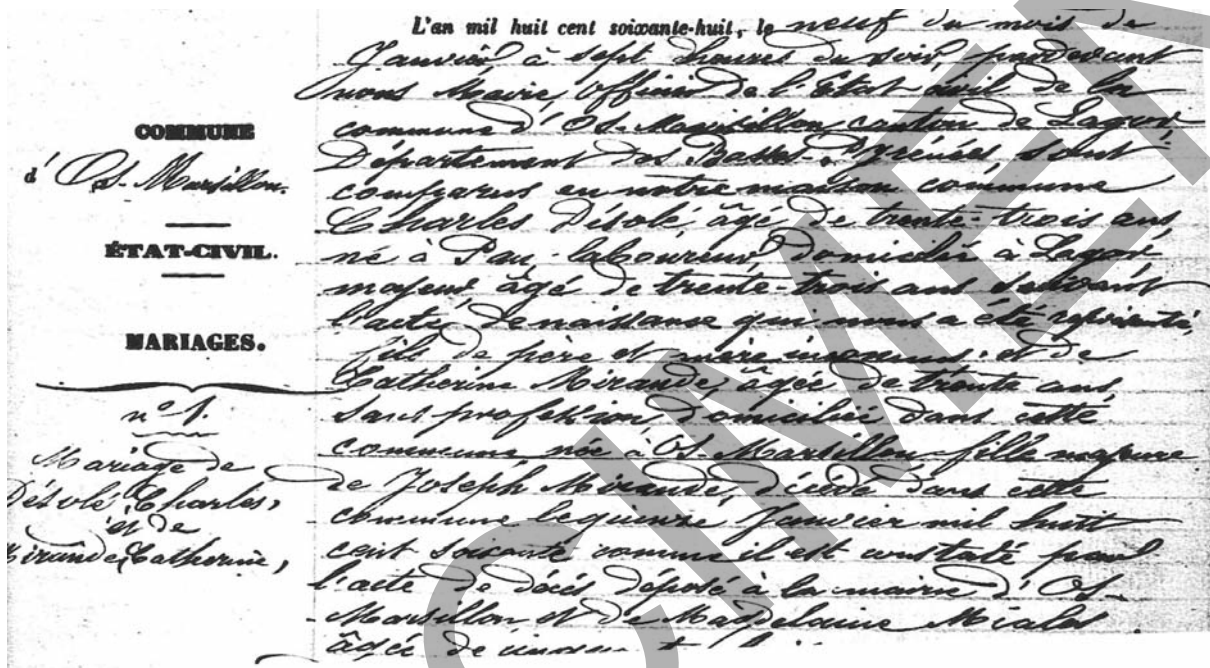 COMMUNE
d' Os-Marsillon.
ÉTAT-CIVIL.
MARIAGES.
n° 1.
Mariage de
Désolé Charles,
et de
Mirande Catherine,
L'an mil huit cent soixante-huit, le neuf du mois de
Janvier à sept heures du soir, pardevant
nous Maire, Officier de l'Etat civil de la
commune d'Os-Marsillon, canton de Lagor
Département des Basses-Pyrénées, sont
comparus en notre maison commune
Charles Désolé, âgé de trente-trois ans
né à Pau, laboureur, domicilié à Lagor
majeur âgé de trente-trois ans suivant
l'acte de naissance qui nous a été représenté,
fils de père et mère inconnus; et de
Catherine Mirande, âgée de trente ans
sans profession domiciliée dans cette
commune née à Os Marsillon fille majeure
de Joseph Mirande, décédé dans cette
commune le quinze Janvier mil huit
cent soixante comme il est constaté par
l'acte de décès déposé à la mairie d'Os-
Marsillon et de Magdelaine Miales
âgée de